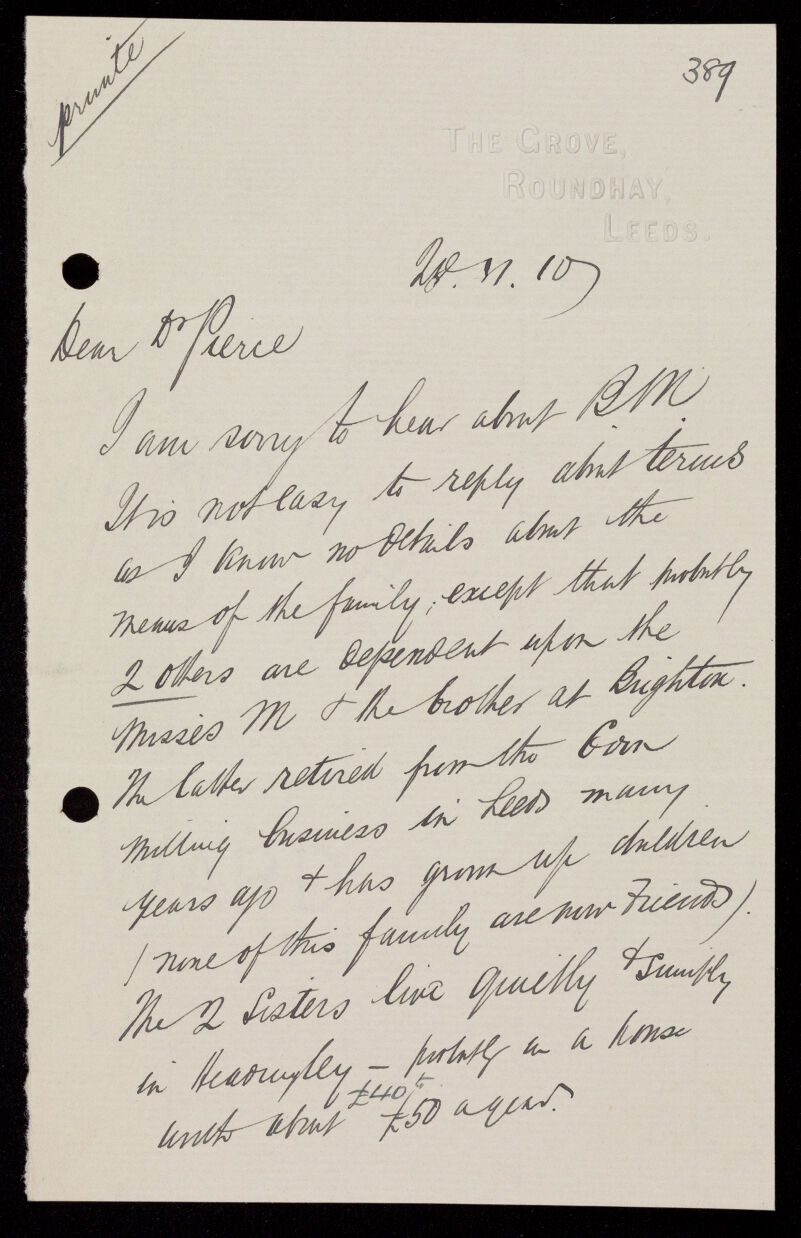 private
389
THE GROVE,
ROUNDHAY,
LEEDS.
28. XI. 10
Dear Dr Pierce
I am sorry to hear about B M.
It is not easy to reply about terms
as I know no details about the
means of the family, except that probably
2 others are dependent upon the
Misses M & the brother at Brighton.
The latter retired from the Corn
Milling business in Leeds many
years ago & has grown up children
(none of this family are now Friends).
The 2 Sisters live quietly & simply
in Headingley – probably in a house
worth about £40 to £50 a year.